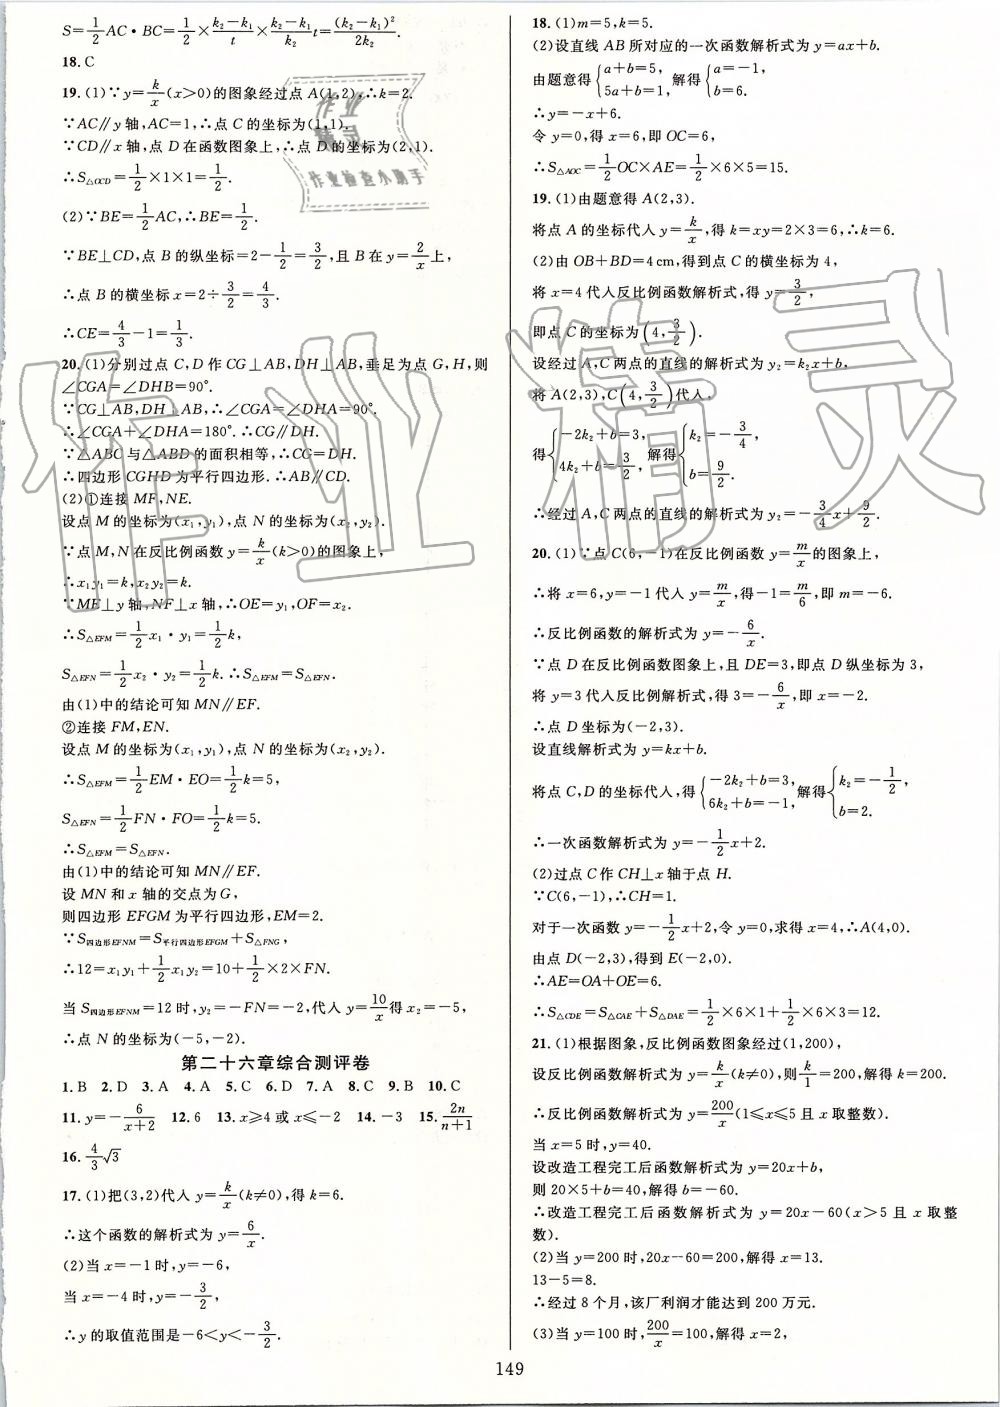 S=1/2 AC·BC=1/2×(k₂-k₁)/t×(k₂-k₁)/k₂ t=(k₂-k₁)²/2k₂.
18. C
19. (1)∵y=k/x(x>0)的图象经过点 A(1,2),∴k=2.
∵AC∥y 轴,AC=1,∴点 C 的坐标为(1,1).
∵CD∥x 轴,点 D 在函数图象上,∴点 D 的坐标为(2,1).
∴S△OCD=1/2×1×1=1/2.
(2)∵BE=1/2 AC,∴BE=1/2.
∵BE⊥CD,点 B 的纵坐标=2-1/2=3/2,且 B 在 y=2/x上,
∴点 B 的横坐标 x=2÷3/2=4/3.
∴CE=4/3-1=1/3.
20. (1)分别过点 C,D 作 CG⊥AB,DH⊥AB,垂足为点 G,H,则
∠CGA=∠DHB=90°.
∵CG⊥AB,DH⊥AB,∴∠CGA=∠DHA=90°.
∴∠CGA+∠DHA=180°.∴CG∥DH.
∵△ABC 与△ABD 的面积相等,∴CG=DH.
∴四边形 CGHD 为平行四边形.∴AB∥CD.
(2)①连接 MF,NE.
设点 M 的坐标为(x₁,y₁),点 N 的坐标为(x₂,y₂).
∵点 M,N 在反比例函数 y=k/x(k>0)的图象上,
∴x₁y₁=k,x₂y₂=k.
∵ME⊥y 轴,NF⊥x 轴,∴OE=y₁,OF=x₂.
∴S△EFM=1/2 x₁·y₁=1/2 k,
S△EFN=1/2 x₂·y₂=1/2 k.∴S△EFM=S△EFN.
由(1)中的结论可知 MN∥EF.
②连接 FM,EN.
设点 M 的坐标为(x₁,y₁),点 N 的坐标为(x₂,y₂).
∴S△EFM=1/2 EM·EO=1/2 k=5,
S△EFN=1/2 FN·FO=1/2 k=5.
∴S△EFM=S△EFN.
由(1)中的结论可知 MN∥EF.
设 MN 和 x 轴的交点为 G,
则四边形 EFGM 为平行四边形,EM=2.
∵S四边形EFNM=S平行四边形EFGM+S△FNG,
∴12=x₁y₁+1/2 x₁y₂=10+1/2×2×FN.
当 S四边形EFNM=12 时,y₂=-FN=-2,代入 y=10/x得 x₂=-5,
∴点 N 的坐标为(-5,-2).
第二十六章综合测评卷
1. B 2. D 3. A 4. A 5. C 6. D 7. B 8. C 9. B 10. C
11. y=-6/(x+2) 12. 6 13. x≥4 或 x≤-2 14. -3 15. 2n/(n+1)
16. 4/3√3
17. (1)把(3,2)代入 y=k/x(k≠0),得 k=6.
∴这个函数的解析式为 y=6/x.
(2)当 x=-1 时,y=-6,
当 x=-4 时,y=-3/2,
∴y 的取值范围是-6<y<-3/2.
18. (1)m=5,k=5.
(2)设直线 AB 所对应的一次函数解析式为 y=ax+b.
由题意得{a+b=5, 5a+b=1, 解得{a=-1, b=6.
∴y=-x+6.
令 y=0,得 x=6,即 OC=6,
∴S△AOC=1/2 OC×AE=1/2×6×5=15.
19. (1)由题意得 A(2,3).
将点 A 的坐标代入 y=k/x,得 k=xy=2×3=6,∴k=6.
(2)由 OB+BD=4cm,得到点 C 的横坐标为 4,
将 x=4 代入反比例函数解析式,得 y=3/2,
即点 C 的坐标为(4,3/2).
设经过 A,C 两点的直线的解析式为 y₂=k₂x+b,
将 A(2,3),C(4,3/2)代入,
得{-2k₂+b=3, 4k₂+b=3/2, 解得{k₂=-3/4, b=9/2.
∴经过 A,C 两点的直线的解析式为 y₂=-3/4 x+9/2.
20. (1)∵点 C(6,-1)在反比例函数 y=m/x的图象上,
∴将 x=6,y=-1 代入 y=m/x,得-1=m/6,即 m=-6.
∴反比例函数的解析式为 y=-6/x.
∵点 D 在反比例函数图象上,且 DE=3,即点 D 纵坐标为 3,
将 y=3 代入反比例解析式,得 3=-6/x,即 x=-2.
∴点 D 坐标为(-2,3).
设直线解析式为 y=kx+b.
将点 C,D 的坐标代入,得{-2k₂+b=3, 6k₂+b=-1, 解得{k₂=-1/2, b=2.
∴一次函数解析式为 y=-1/2 x+2.
(2)过点 C 作 CH⊥x 轴于点 H.
∵C(6,-1),∴CH=1.
对于一次函数 y=-1/2 x+2,令 y=0,求得 x=4,∴A(4,0).
由点 D(-2,3),得到 E(-2,0).
∴AE=OA+OE=6.
∴S△CDE=S△CAE+S△DAE=1/2×6×1+1/2×6×3=12.
21. (1)根据图象,反比例函数图象经过(1,200),
设反比例函数解析式为 y=k/x(k≠0),则k/1=200,解得 k=200.
∴反比例函数解析式为 y=200/x(1≤x≤5 且 x 取整数).
当 x=5 时,y=40.
设改造工程完工后函数解析式为 y=20x+b,
则 20×5+b=40,解得 b=-60.
∴改造工程完工后函数解析式为 y=20x-60(x>5 且 x 取整
数).
(2)当 y=200 时,20x-60=200,解得 x=13.
13-5=8.
∴经过 8 个月,该厂利润才能达到 200 万元.
(3)当 y=100 时,200/x=100,解得 x=2,
149
作业精灵
作业
精灵
作业检查小助手